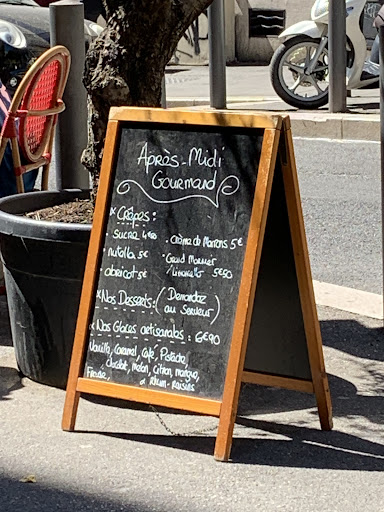 Après-Midi
Gourmand
* Crêpes:
sucre 4€50 · Crème de Marrons 5€
nutella 5€ · Grand Marnier
abricot 5€ / Limoncello 5€50
* Nos Desserts: (Demandez
au Serveur)
* Nos Glaces artisanales : 6€90
Vanille, Caramel, Café, Pistache,
Chocolat, melon, Citron, mangue,
Fraise, et Rhum-Raisins